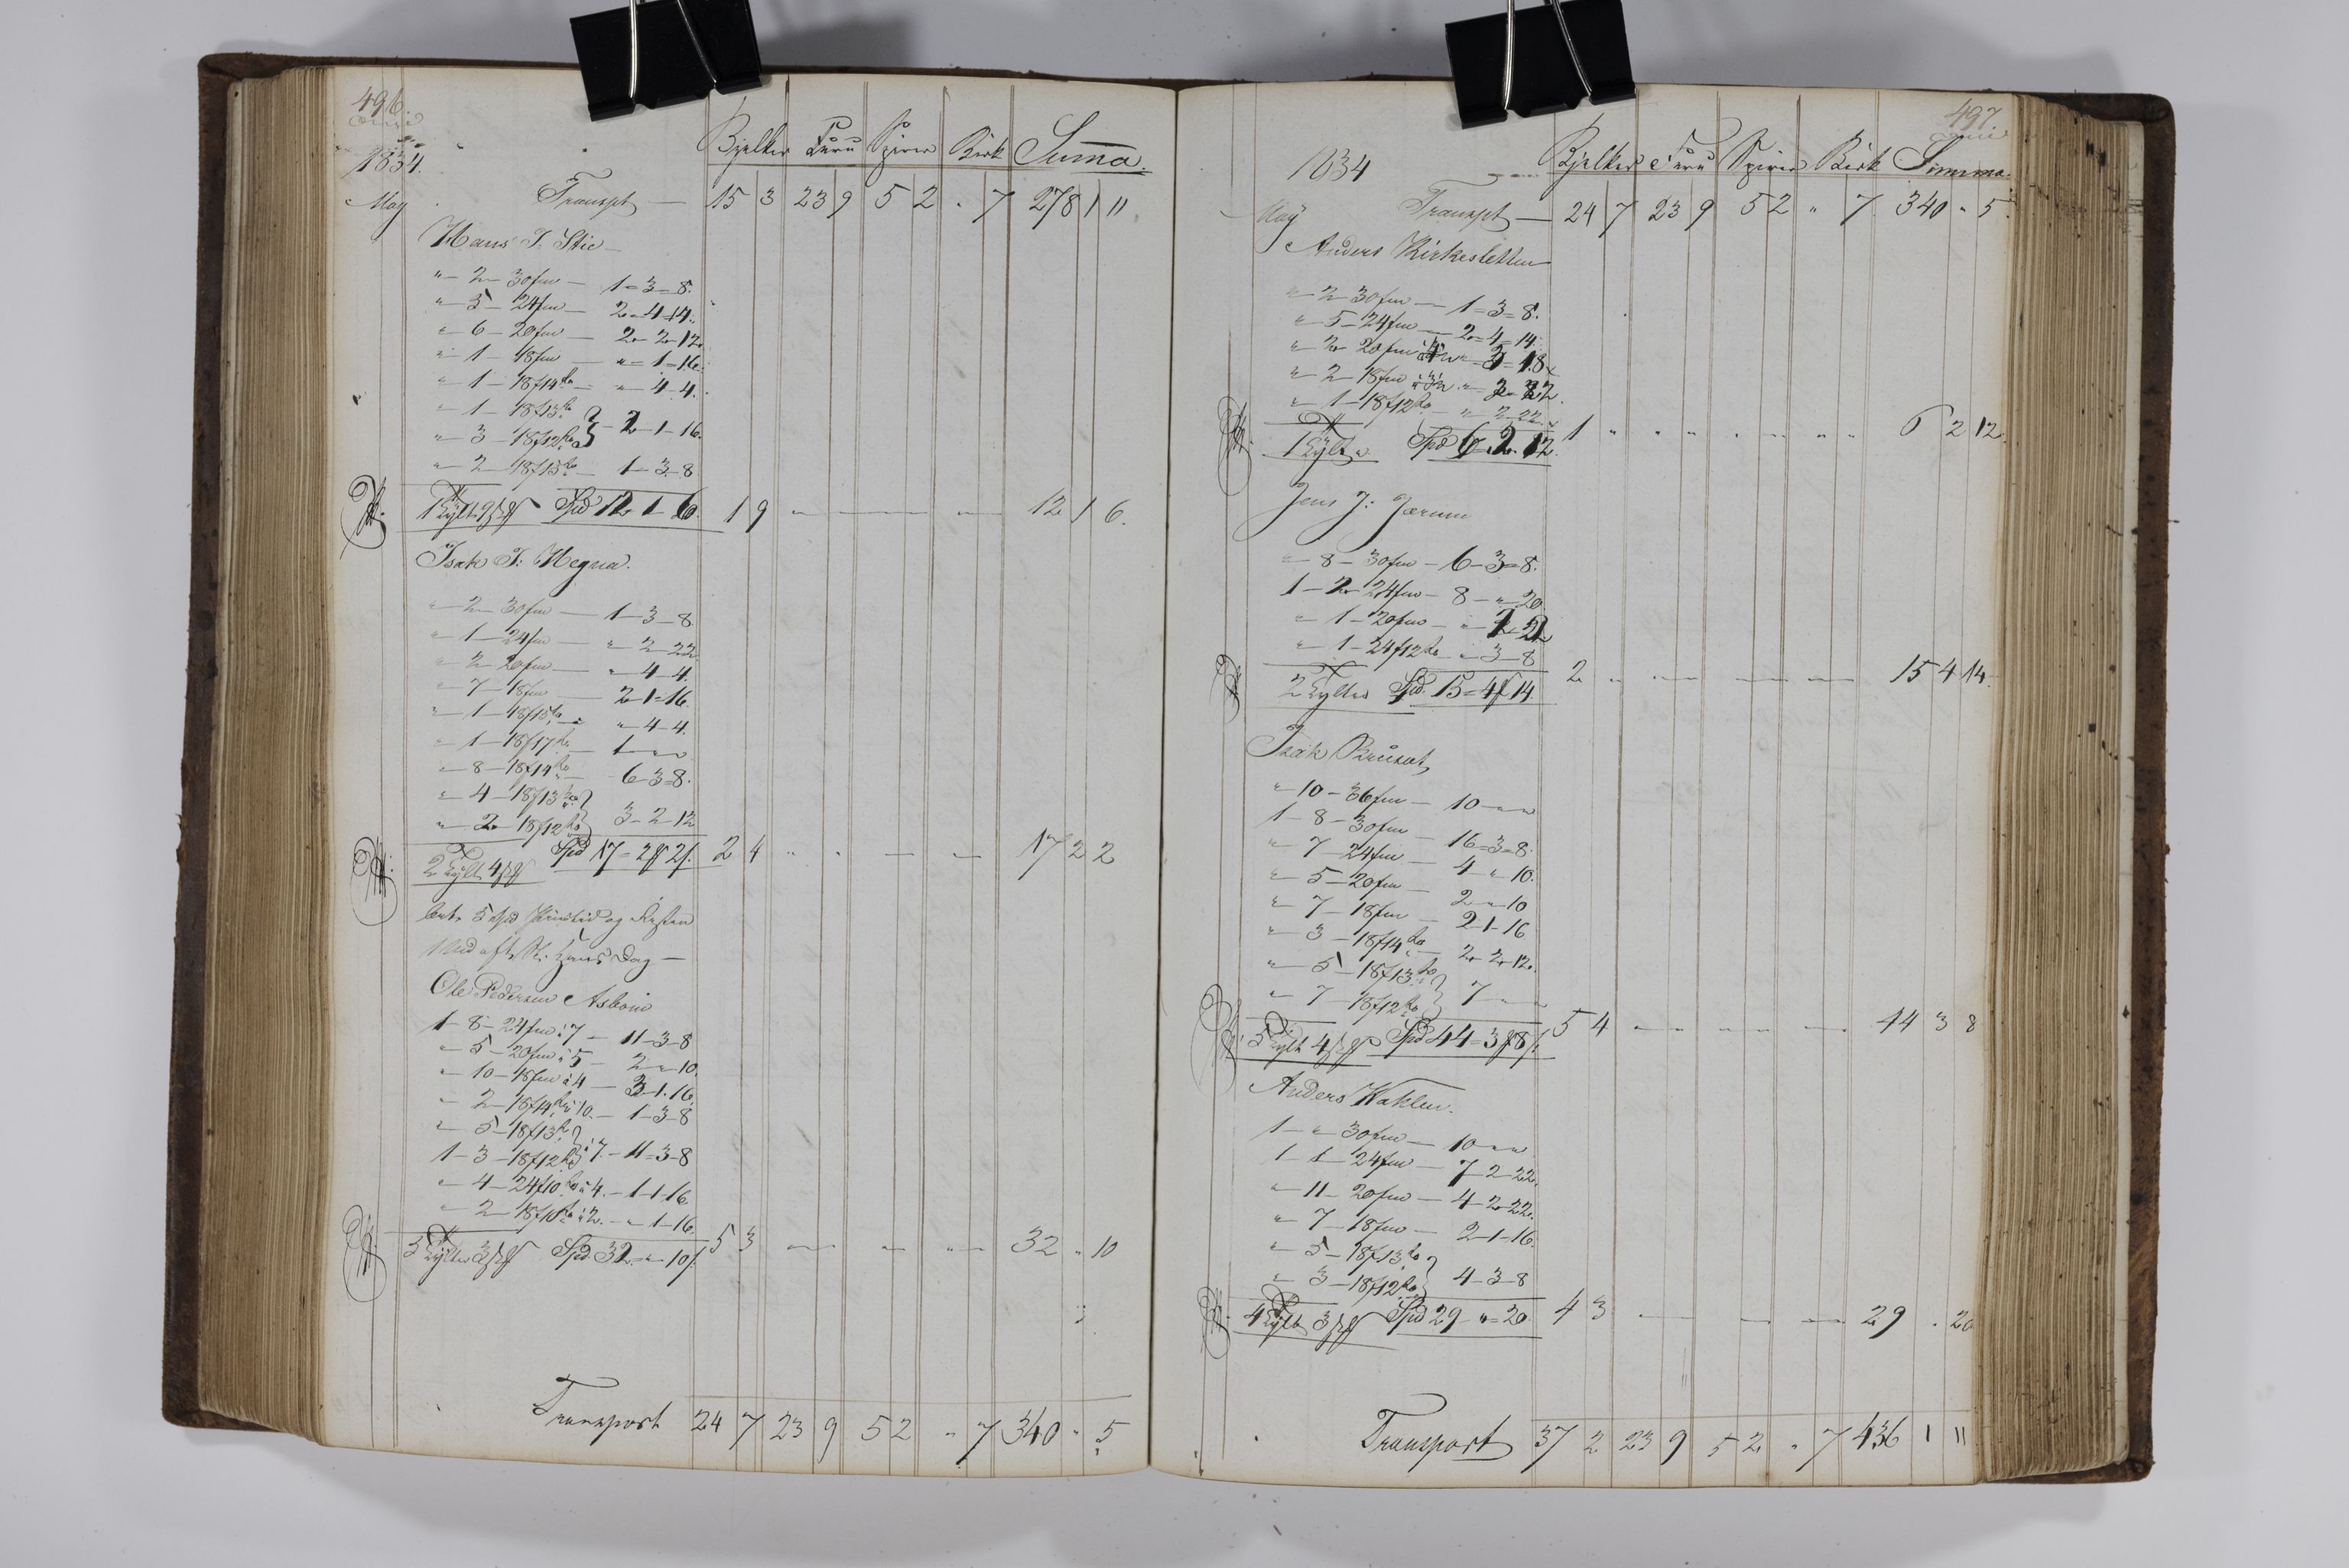 496.
1834.
Bjelker Furu Spirer Birk Summa.
May Transpt — 15 3 23 9 5 2 " 7 278 1 11
Hans J. Stie —
" 2 - 30fm — 1 = 3 = 8.
" 5 - 24fm — 2 - 4 - 14.
" 6 - 20fm — 2 - 2 - 12.
" 1 - 18fm — " = 1 = 16.
" 1 - 18f14to — " 4 - 4.
" 1 - 18f13to
" 3 - 18f12to } 2 - 1 - 16.
" 2 - 18f15to — 1 - 3 - 8
1 Tylt 9 Spd 12 - 1 - 6. 1 9 — — — 12 1 6.
Isak J. Hegna.
" 2 - 30fm — 1 - 3 - 8
" 1 - 24fm — " 2 - 22
" 2 - 20fm — " 4 - 4.
" 7 - 18fm — 2 - 1 = 16.
" 1 - 18f15to — " 4 - 4.
" 1 - 18f17to — 1 - " "
" 8 - 18f14to — 6 - 3 = 8.
" 4 - 18f13to
" 2 - 18f12to } 3 - 2 - 12
2 Tylt 4 Spd 17 = 2 2 2 4 " " — — 17 2 2
bet. 5 Spd og Resten
Ved afts St. Hans Dag —
Ole Pedersen Asboin
1 - 8 - 24fm à 7 - 11 - 3 - 8
" 5 - 20fm à 5 - 2 - " 10.
" 10 - 18fm à 4 - 3 - 1 - 16.
" 2 - 18f14to à 10 - 1 - 3 - 8
" 5 - 18f13to
1 - 3 - 18f12to } à 7 - 11 = 3 - 8
" 4 - 24f10to à 4. - 1 - 1 - 16.
" 2 - 18f10to à 2. - " 1 - 16.
5 Tylter 3 Spd 32 - " - 10. 5 3 — — — 32 " 10
Transport 24 7 23 9 5 2 " 7 340 " 5
497.
1834
Bjelker Furu Spirer Birk Summa.
May Transpt — 24 7 23 9 5 2 " 7 340 " 5.
Anders Kirkesletten
" 2 - 30fm — 1 = 3 = 8.
" 5 - 24fm — 2 = 4 = 14.
" 2 - 20fm " = 3 = 18
" 2 - 18fm " = 2 - 22.
" 1 - 18f12to - " 2 22
1 Tylt " Spd 6. 2. 12. 1 " " " " " " " 6 2 12.
Jens J. Jarum
" 8 - 30fm - 6 - 3 = 8.
1 - 2 - 24fm - 8 - " 20
" 1 - 20fm - " 2 - 2
" 1 - 24f12to " 3 - 8
2 Tylter Spd. 15 = 4 14. 2 — — — — 15 4 14.
Isak Bruset
" 10 - 36fm - 10 - " "
1 - 8 - 30fm - 16 = 3 = 8.
" 7 - 24fm - 4 - " 10.
" 5 - 20fm - 2 - " 10
" 7 - 18fm - 2 - 1 - 16
" 3 - 18f14to - 2 - 2 - 12.
" 5 - 18f13to
" 7 - 18f12to } 7 - " "
5 Tylt 4 Spd 44 = 3 8 5 4 — — — — 44 3 8
Anders Kaklen.
1 - " 30fm - 10 - " "
1 - 1 - 24fm - 7 2 - 22.
" 11 - 20fm - 4 - 2 - 22.
" 7 - 18fm - 2 - 1 - 16.
" 5 - 18f13to
" 3 - 18f12to } 4 - 3 - 8
4 Tylt 3 Spd 29 - " = 20. 4 3 — — — 29 " 20
Transport 37 2 23 9 5 2 " 7 436 1 11